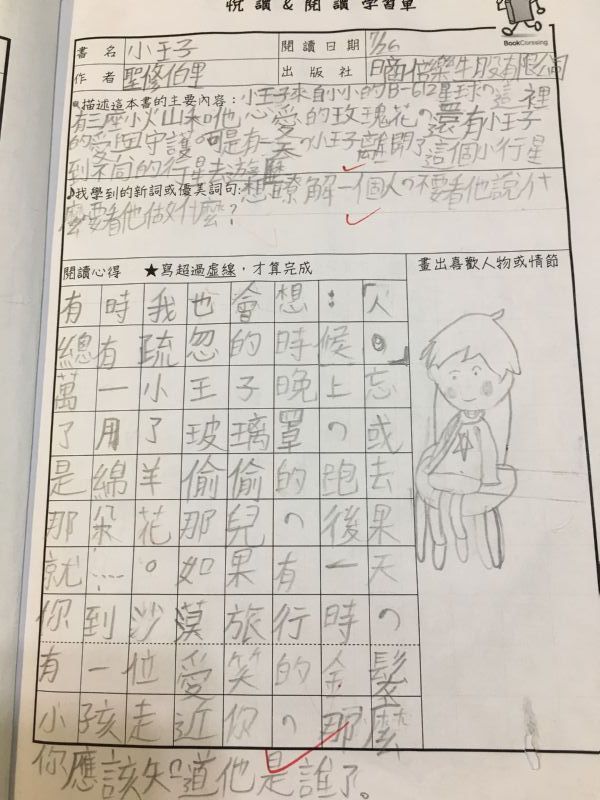 悅讀&閱讀學習單
BookCrossing
書名 小王子 閱讀日期 7/26
作者 聖修伯里 出版社 日商倍樂生股有限公司
描述這本書的主要內容:小王子來自小小的B-612星球,這裡
有三座小火山和他心愛的玫瑰花,還有小王子
的愛田守護,可是有一天,小王子離開了這個小行星
到不同的行星去遊歷
♪我學到的新詞或優美詞句:想瞭解一個人,不要看他說什
麼要看他做什麼?
閱讀心得 ★寫超過虛線,才算完成 畫出喜歡人物或情節
有時我也會想:「人
總有疏忽的時候。」
萬一小王子晚上忘
了用了玻璃罩,或
是綿羊偷偷的跑去
那朵花那兒,後果
就……。如果有一天
你到沙漠旅行時,
有一位愛笑的金髮
小孩走近你,那麼
你應該知道他是誰了。